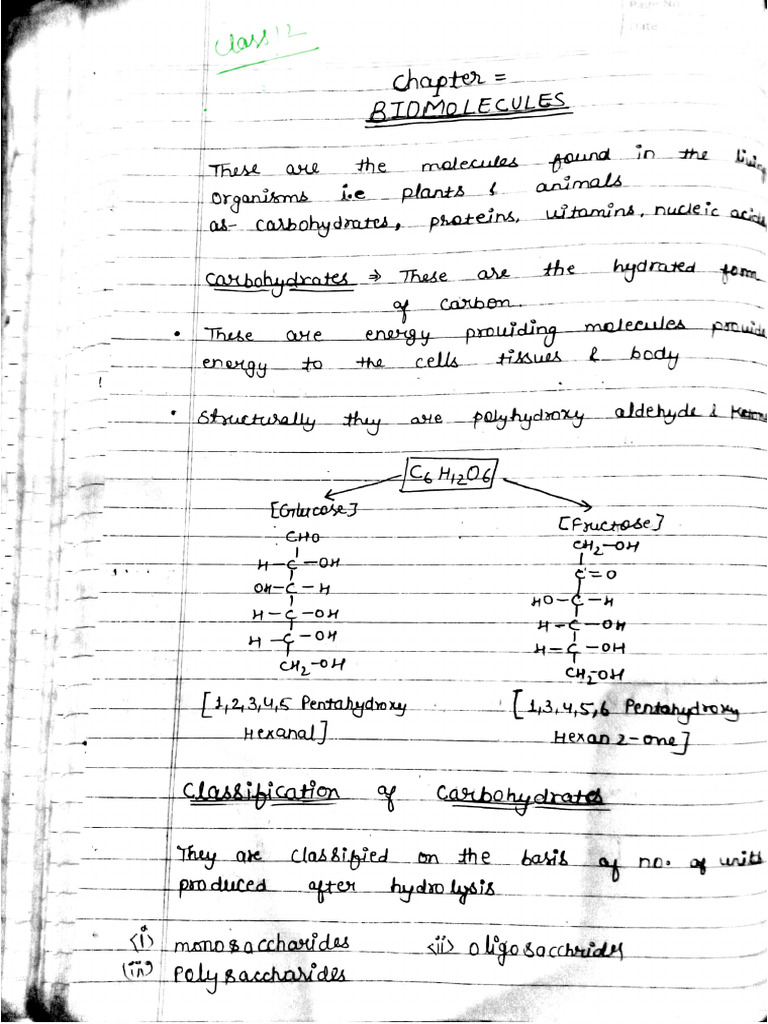 Page No.
Date
Class 12
Chapter =
BIOMOLECULES
These are the molecules found in the living
organisms i.e plants & animals
as- carbohydrates, proteins, vitamins, nucleic acids
Carbohydrates ⇒ These are the hydrated form
of carbon.
• These are energy providing molecules provide
energy to the cells tissues & body
• Structurally they are polyhydroxy aldehyde & Ketone
C6H12O6
[Glucose] [Fructose]
CHO
H-C-OH
OH-C-H
H-C-OH
H-C-OH
CH2-OH
CH2-OH
C=O
HO-C-H
H-C-OH
H-C-OH
CH2-OH
[1,2,3,4,5 Pentahydroxy
Hexanal]
[1,3,4,5,6 Pentahydroxy
Hexan 2-one]
Classification of Carbohydrates
They are classified on the basis of no. of units
produced after hydrolysis
(i) monosaccharides (ii) oligosacchrides
(iii) Polysaccharides